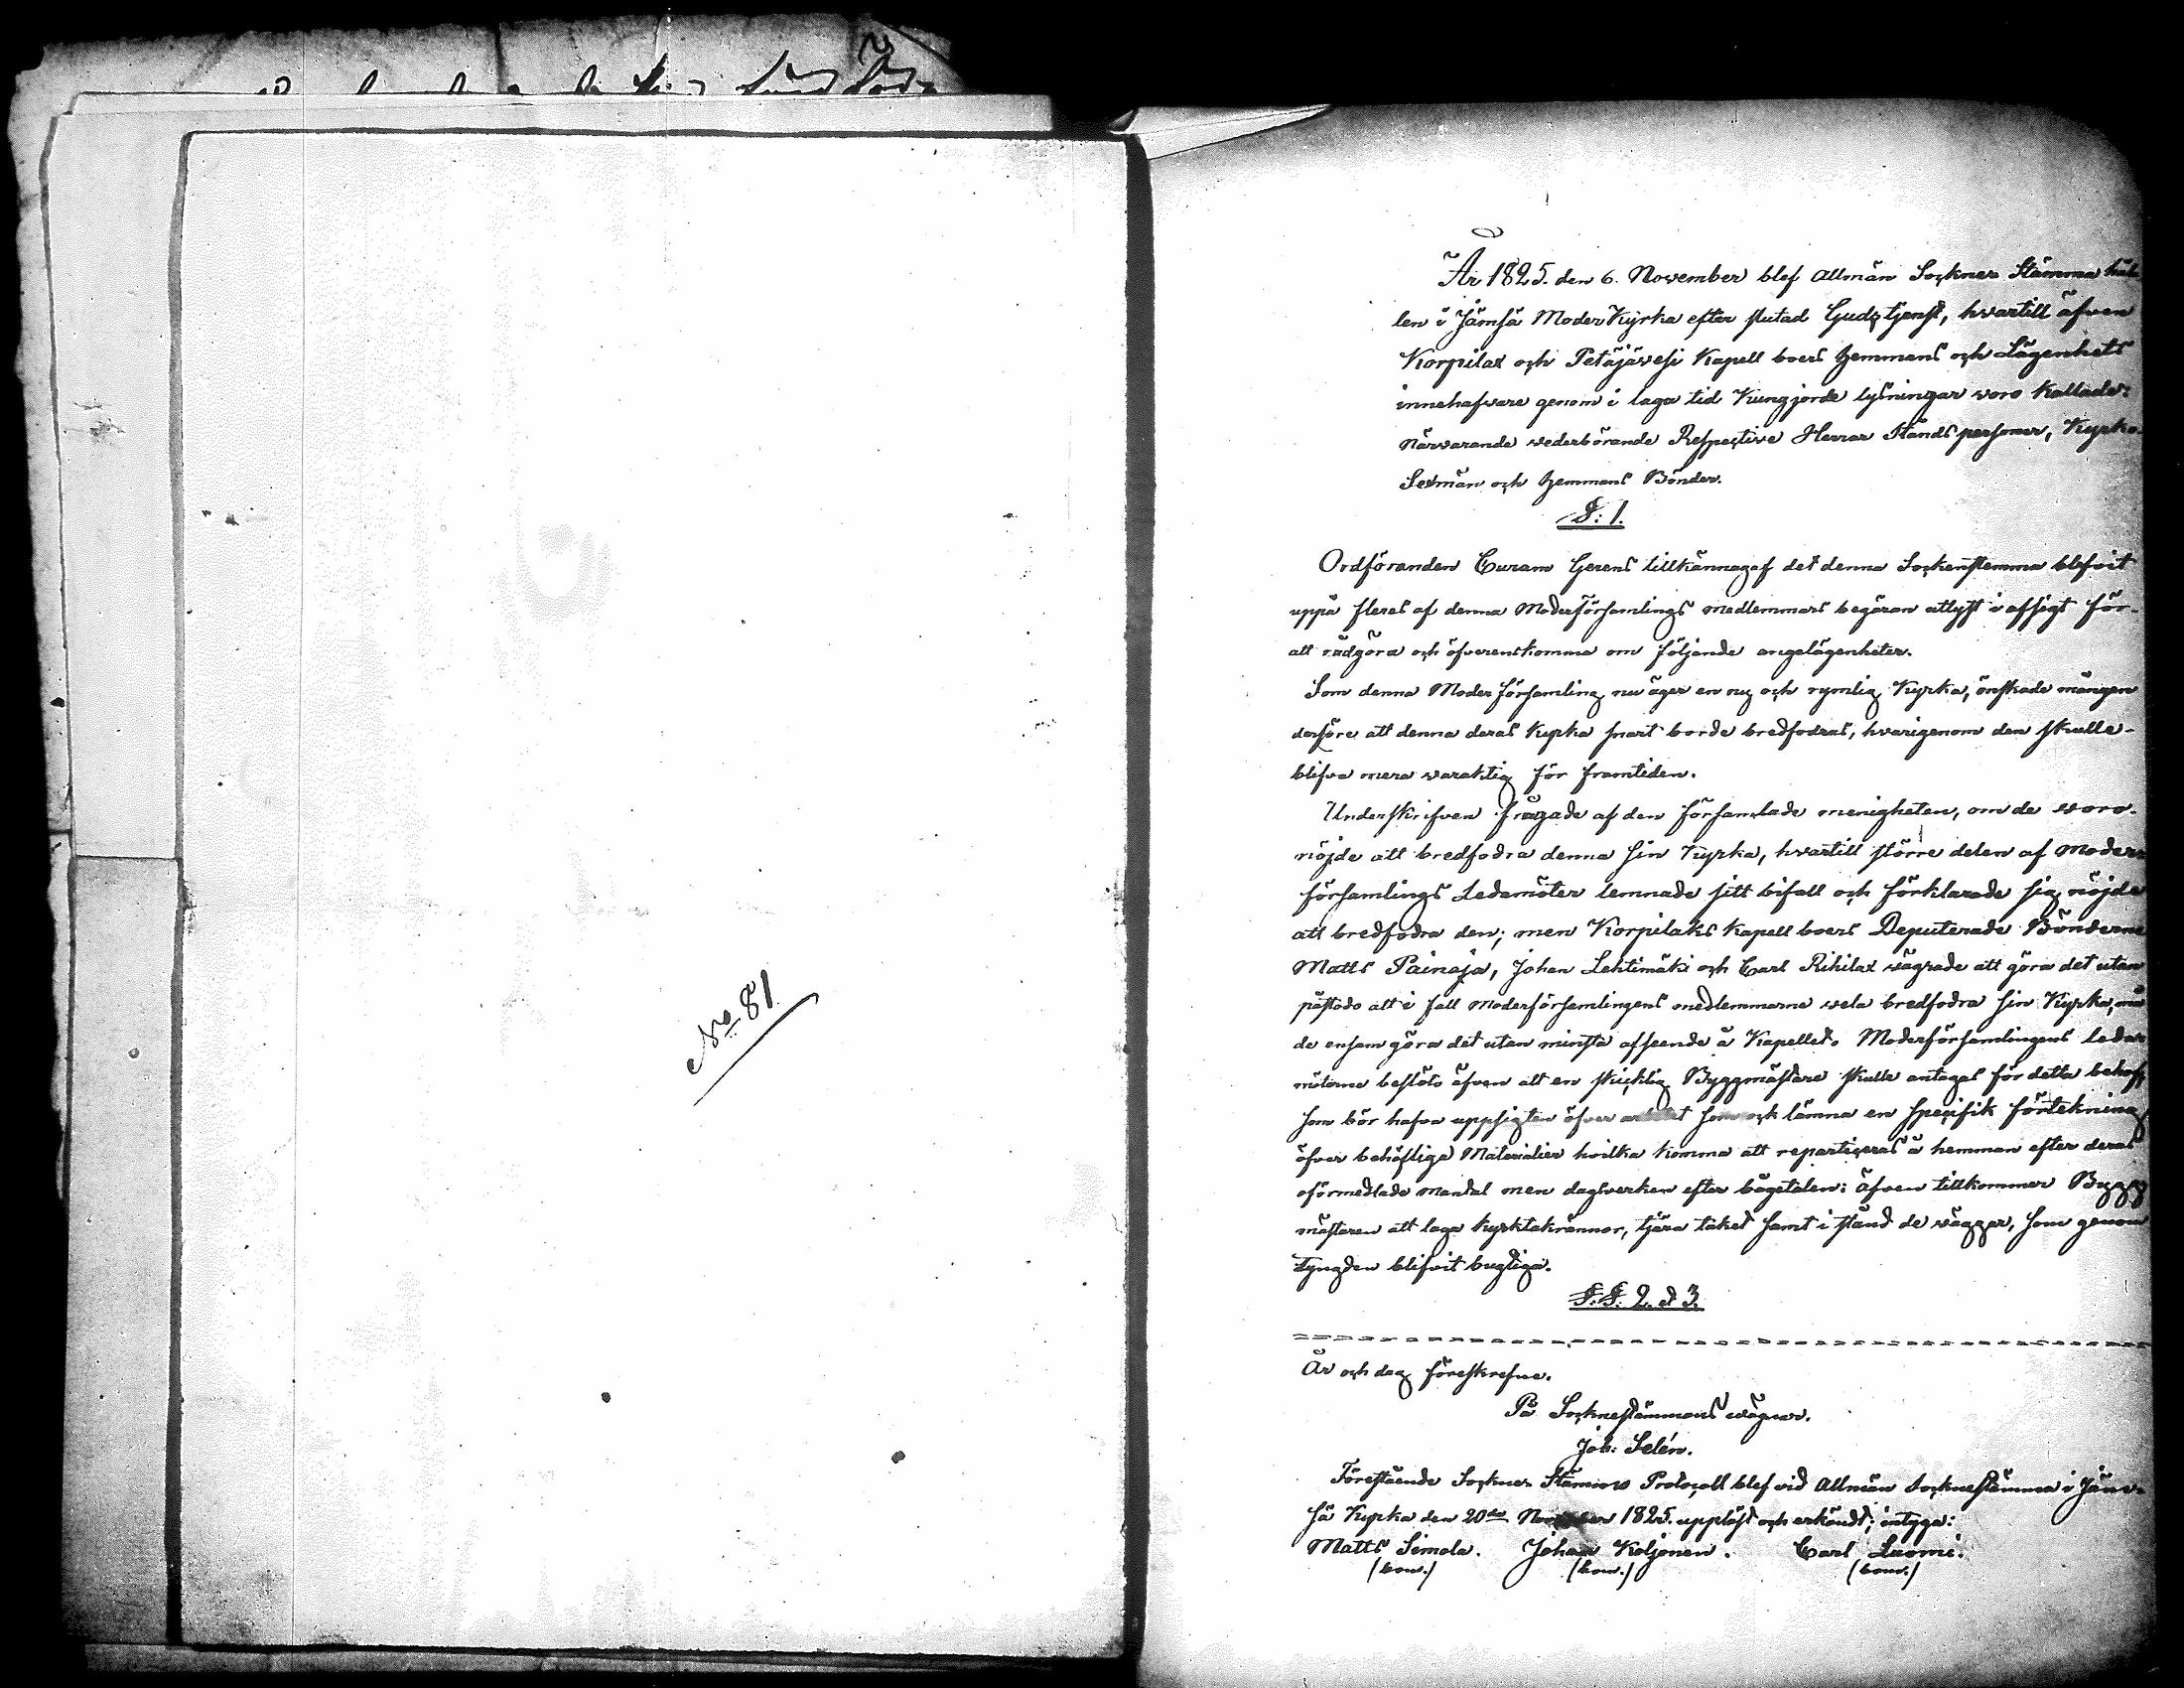 No 81.
År 1825. den 6. November blef allmän Sockne Stämma hål-
len i Jämsä Moder Kyrka efter slutad Gudstjenst, hvartill äfven
Korpilax och Petäjävesi Kapell boers Hemmans och Lägenhets
innehafvare genom i laga tid Kungjorde lysningar voro Kallade:
närvarande vederbörande Respective Herrar Ståndspersoner, Kyrko-
Sexmän och Hemmans Bönder.
§: 1.
Ordföranden Curam Gerens tillkännagaf det denna Sockenstemma blifvit
uppå fleres af denna Moderförsamlings medlemmars begäran utlyst i afsigt för-
att rådgöra och öfverenskomma om följande angelägenheter.
Som denna Moder församling nu äger en ny och rymlig Kyrka, önskade mången
derföre att denna deras Kyrka snart borde bredfodras, hvarigenom den skulle-
blifva mera varaktig för framtiden.
Underskrifven frågade af den församlade menigheten, om de voro-
nöjde att bredfodra denna sin Kyrka, hvartill större delen af moder
församlings Ledamöter lemnade sitt bifall och förklarade sig nöjde
att bredfodra den; men Korpilaks Kapell boers Deputerade Bönderne
Matts Painaja, Johan Lehtimäki och Carl Rihilax vägrade att göra det utan
påstodo att i fall moderförsamlingens medlemmarne vela bredfodra sin Kyrka, må
de ensam göra det utan minsta afseende å Kapellet. Moderförsamlingens leda-
möterne beslöto äfven att en skicklig Byggmästare skulle antagas för detta behof,
som bör hafva uppsigten öfver arbetet som ock lämna en specifik förtekning
öfver behöfliga Materialier hvilka komma att reparticeras å hemman efter deras
oförmedlade mantal men dagsverken efter bågetalen: äfven tillkommer Bygg
mästaren att laga kyrktakrännor, tjära taket samt i stånd de väggar, som genom
tyngden blifvit bugtiga.
§.§. 2. & 3.
År och dag föreskrefne.
På Socknestämmans vägnar.
Joh: Selén.
Förestående Sockne Stämmo Protocoll blef vid allmän Socknestämma i Jäm-
sä Kyrka den 20de November 1825. uppläst och erkändt; intyga:
Matts Simola. Johan Koljonen. Carl Luomi.